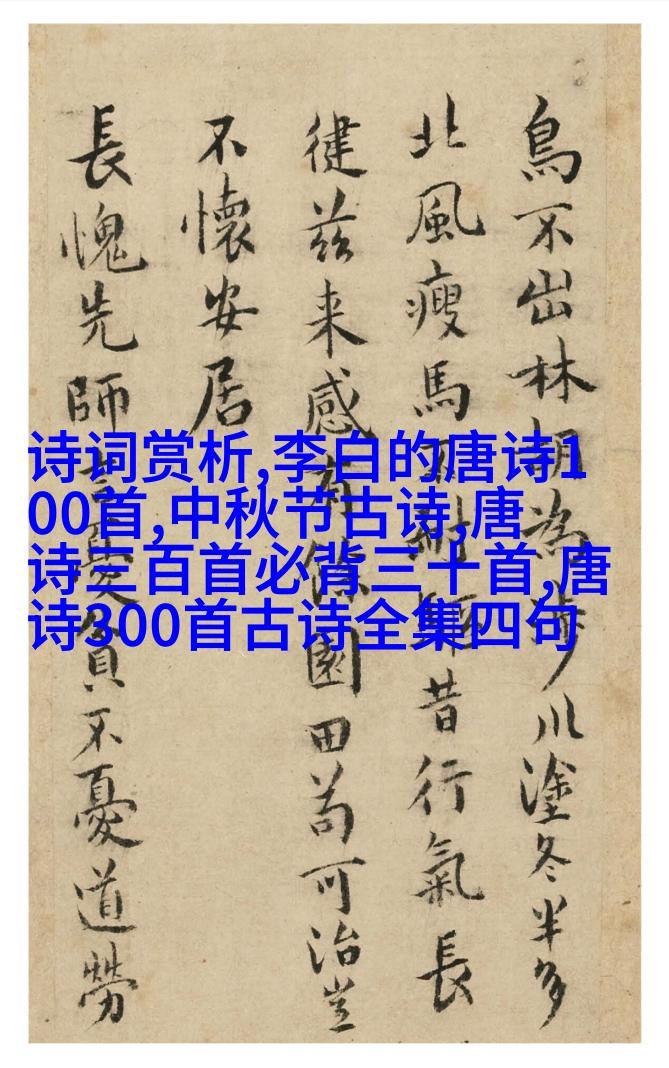 鳥不出林朝為步川塗冬半多
北風瘦馬不耐驅昔行氣長
健茲来感有餘園田苟可治豈
不懷安居
長愧先師言憂貧不憂道勞
诗词赏析,李白的唐诗1
00首,中秋节古诗,唐
诗三百首必背三十首,唐
诗300首古诗全集四句